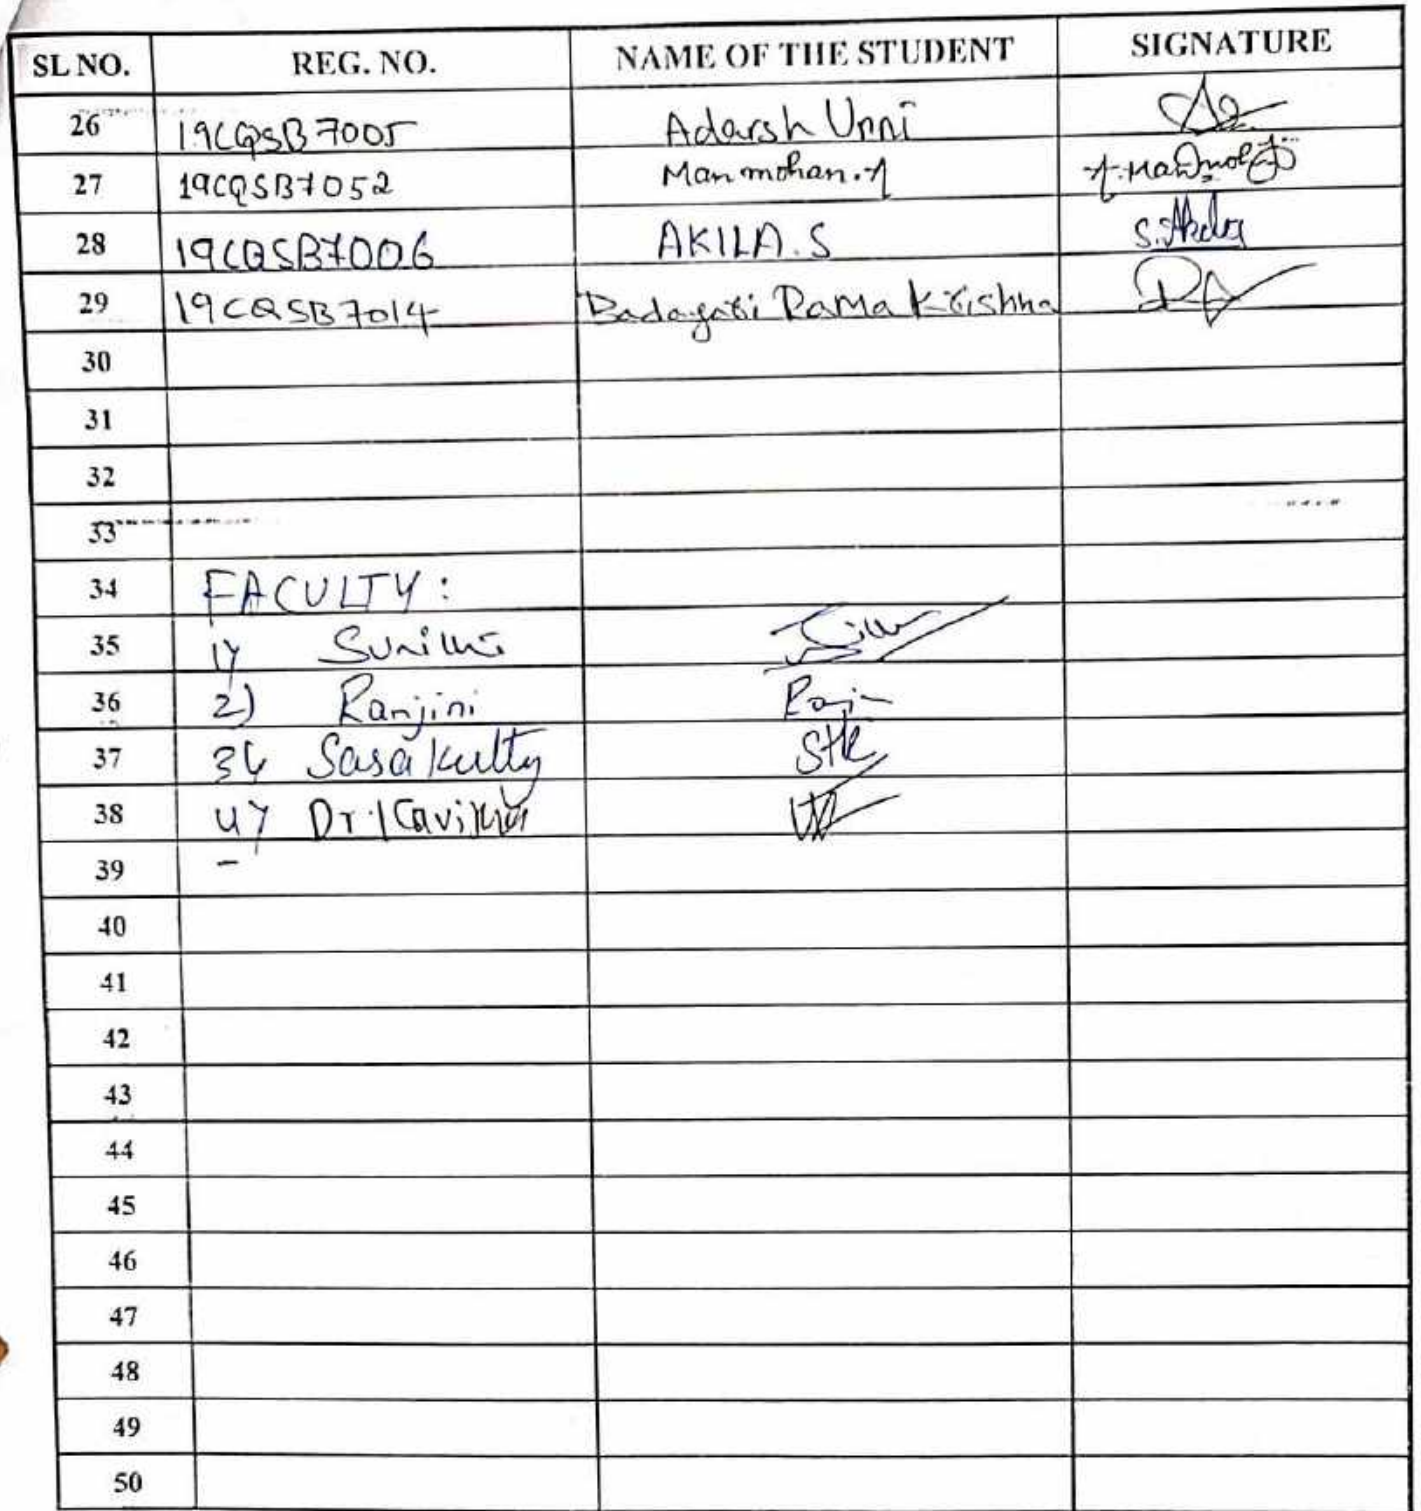 SL NO. REG. NO. NAME OF THE STUDENT SIGNATURE
26 19CQSB7005 Adarsh Unni
27 19CQSB7052 Manmohan.A A.Manmohan
28 19CQSB7006 AKILA.S S.Akila
29 19CQSB7014 Badagati Rama Krishna
30
31
32
33
34 FACULTY:
35 1)
36 2) Ranjini
37 3) Sasa Kutty STK
38 4) Dr. Kavitha
39 -
40
41
42
43
44
45
46
47
48
49
50